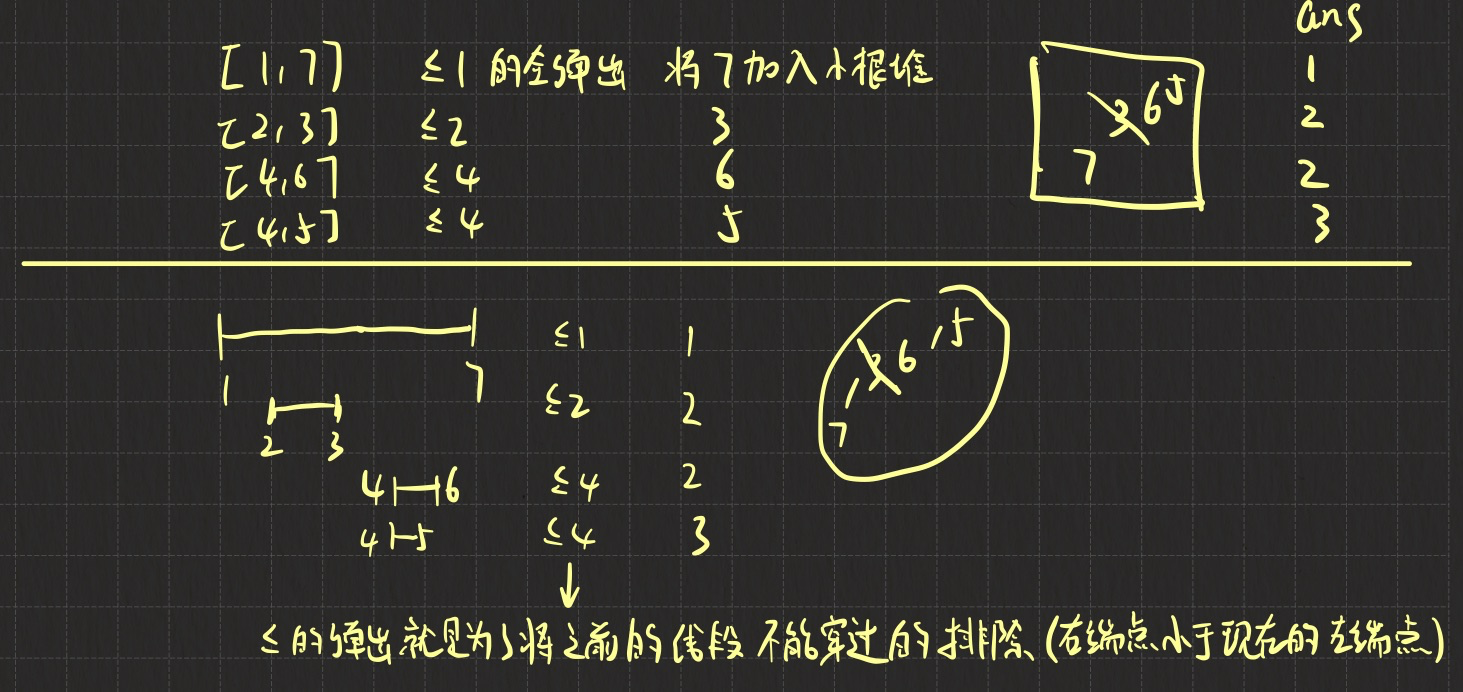 ans
[1,7] ≤1 的全弹出 将7加入小根堆 1
[2,3] ≤2 3 3 6 5 2
[4,6] ≤4 6 7 2
[4,5] ≤4 5 3
≤1 1 3 6,5
1 7 ≤2 2 7,
2 3
4 6 ≤4 2
4 5 ≤4 3
≤的弹出就是为了将之前的线段不能穿过的排除(右端点小于现在的左端点)